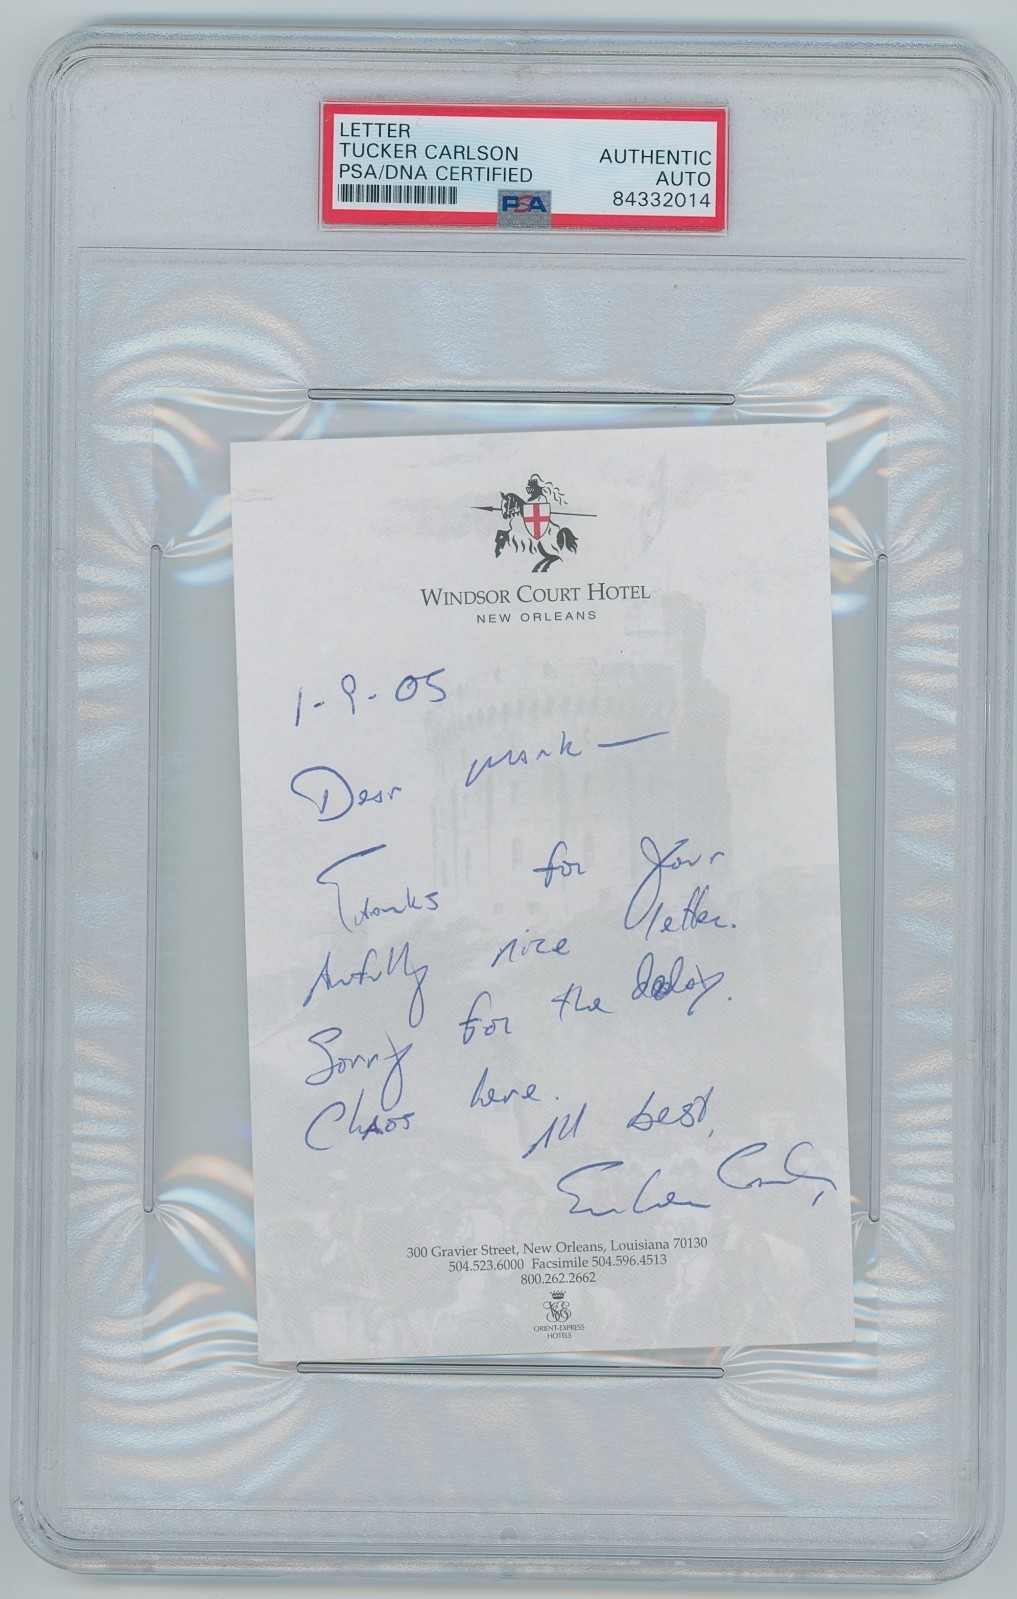 LETTER
TUCKER CARLSON
PSA/DNA CERTIFIED
AUTHENTIC
AUTO
84332014
PSA
WINDSOR COURT HOTEL
NEW ORLEANS
1-9-05
Dear Mark —
Thanks for your
Awfully nice letter.
Sorry for the delay.
Chaos here.
All best,
300 Gravier Street, New Orleans, Louisiana 70130
504.523.6000 Facsimile 504.596.4513
800.262.2662
ORIENT-EXPRESS
HOTELS